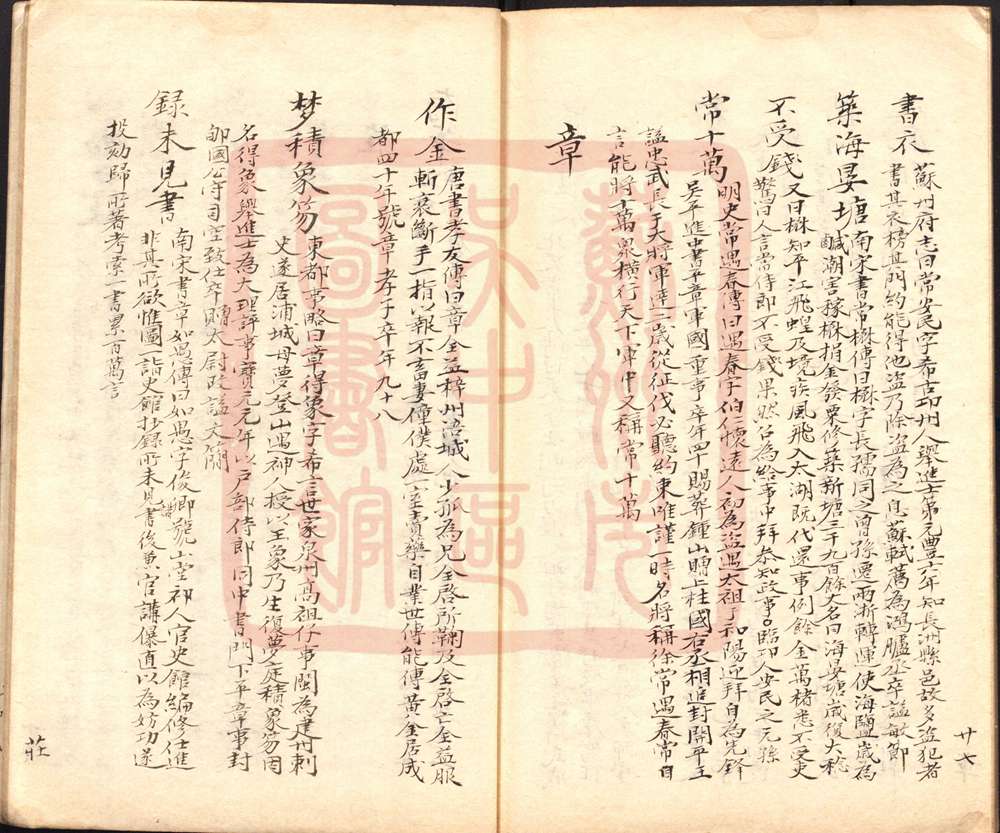 廿七
書衣 蘇州府志曰常安民字希古邛州人舉進士第元豐六年知長洲縣邑故多盜犯者
書其衣榜其門約能得他盜乃除盜為之息蘇軾薦為鴻臚丞卒謚敏節
築海晏塘 南宋書常楙傳曰楙字長孺同之曾孫遷兩浙轉運使海鹽歲為
鹹潮害稼楙捐金發粟修築新塘三千九百餘丈名曰海晏塘歲復大稔
不受錢 又曰楙知平江飛蝗及境疾風飛入太湖既代還事例餘金萬楮悉不受吏
驚曰人言常侍郎不受錢果然召為給事中拜參知政事臨邛人安民之元孫
常十萬 明史常遇春傳曰遇春字伯仁懷遠人初為盜遇太祖于和陽迎拜自為先鋒
吳平進中書平章軍國重事卒年四十賜葬鍾山贈上柱國右丞相追封開平王
謚忠武長于大將軍達二歲從征伐必聽約束唯謹一時名將稱徐常遇春常自
言能將十萬眾橫行天下軍中又稱常十萬
章
作金 唐書孝友傳曰章全益梓州涪城人少孤為兄全啓所鞠及全啓亡全益服
斬衰斷手一指以報不畜妻僮僕處一室賣藥自業世傳能傳黃金居成
都四十年號章孝子卒年九十八
梦積象笏 東都事略曰章得象字希言世家泉州高祖仔事閩為建州刺
史遂居浦城母夢登山遇神人授以玉象乃生復夢庭積象笏因
名得象舉進士為大理評事寶元元年以戶部侍郎同中書門下平章事封
郇國公守司空致仕卒贈太尉改謚文簡
錄未見書 南宋書章如愚傳曰如愚字俊卿號山堂初入官史館編修仕進
非其所欲惟圖一詣史館抄錄所未見書後兼官講爆直以為妨功遂
投劾歸所著考索一書累百萬言
莊
蘇州市
吳中區
圖書館